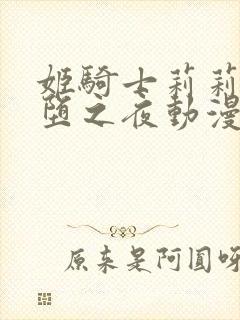 姬騎士莉莉
堕之夜動漫
原来是阿圓呀